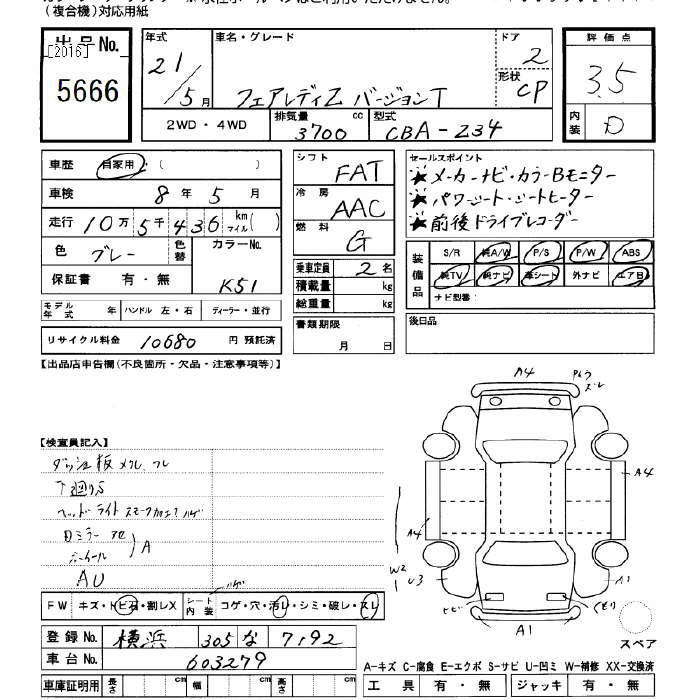 (複合機)対応用紙
出品No.
[2016]
5666
年式 21/5月
車名・グレード
フェアレディZ バージョンT
ドア 2
形状 CP
評価点 3.5
内装 D
2WD・4WD
排気量 3700 cc
型式 CBA-Z34
車歴 自家用 ( )
車検 8年 5月
走行 10万5千436 km マイル( )
色 グレー
色替
カラーNo. K51
保証書 有・無
モデル年式 年 ハンドル 左・右 ディーラー・並行
リサイクル料金 10680 円 預託済
シフト FAT
冷房 AAC
燃料 G
乗車定員 2名
積載量 kg
総重量 kg
書類期限
月 日
セールスポイント
★メーカーナビ・カラーBモニター
★パワーシート・シートヒーター
★前後ドライブレコーダー
装備品
S/R 純A/W P/S P/W ABS
純TV 純ナビ 革シート 外ナビ エアB
ナビ型番:
後日品
【出品店申告欄(不良箇所・欠品・注意事項等)】
【検査員記入】
ダッシュ板 メクレ
下廻りS
ヘッドライト ハゲ
Dミラー
ホイール
A
AU
FW キズ・トビ石・割レX
シート内装 コゲ・穴・汚レ・シミ・破レ・スレ
ハゲ
登録No. 横浜 305 な 7192
車台No. 603279
車庫証明用 長さ cm 幅 cm 高さ cm
A4
ズレ
A4
A4
W2
U3
A1
トビ
A1
スペア
A-キズ C-腐食 E-エクボ S-サビ U-凹ミ W-補修 XX-交換済
工具 有・無 ジャッキ 有・無